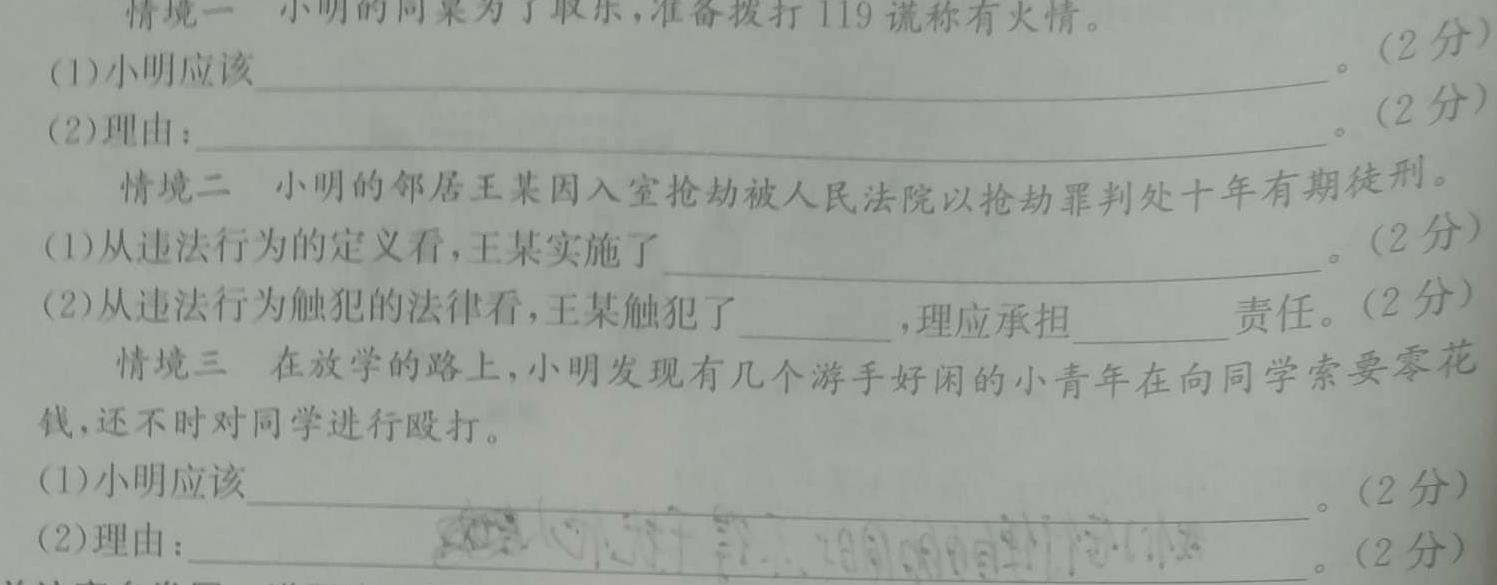 情境一 小明的同桌为了取乐,准备拨打119谎称有火情。
(1)小明应该 。(2分)
(2)理由: 。(2分)
情境二 小明的邻居王某因入室抢劫被人民法院以抢劫罪判处十年有期徒刑。
(1)从违法行为的定义看,王某实施了 。(2分)
(2)从违法行为触犯的法律看,王某触犯了 ,理应承担 责任。(2分)
情境三 在放学的路上,小明发现有几个游手好闲的小青年在向同学索要零花
钱,还不时对同学进行殴打。
(1)小明应该 。(2分)
(2)理由: 。(2分)